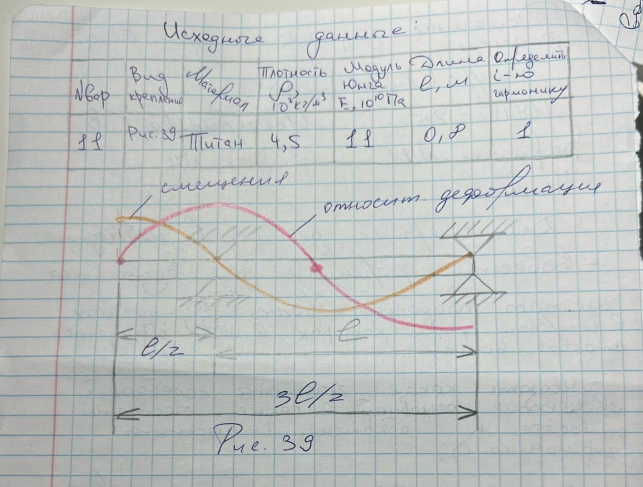 Исходные данные:
Nвар
Вид крепления
Материал
Плотность ρ, 10³кг/м³
Модуль Юнга E, 10¹⁰Па
Длина l, м
Определить i-ю гармонику
11
Рис. 39
Титан
4,5
11
0,8
1
смещения
относит. деформация
l/2
l
3l/2
Рис. 39